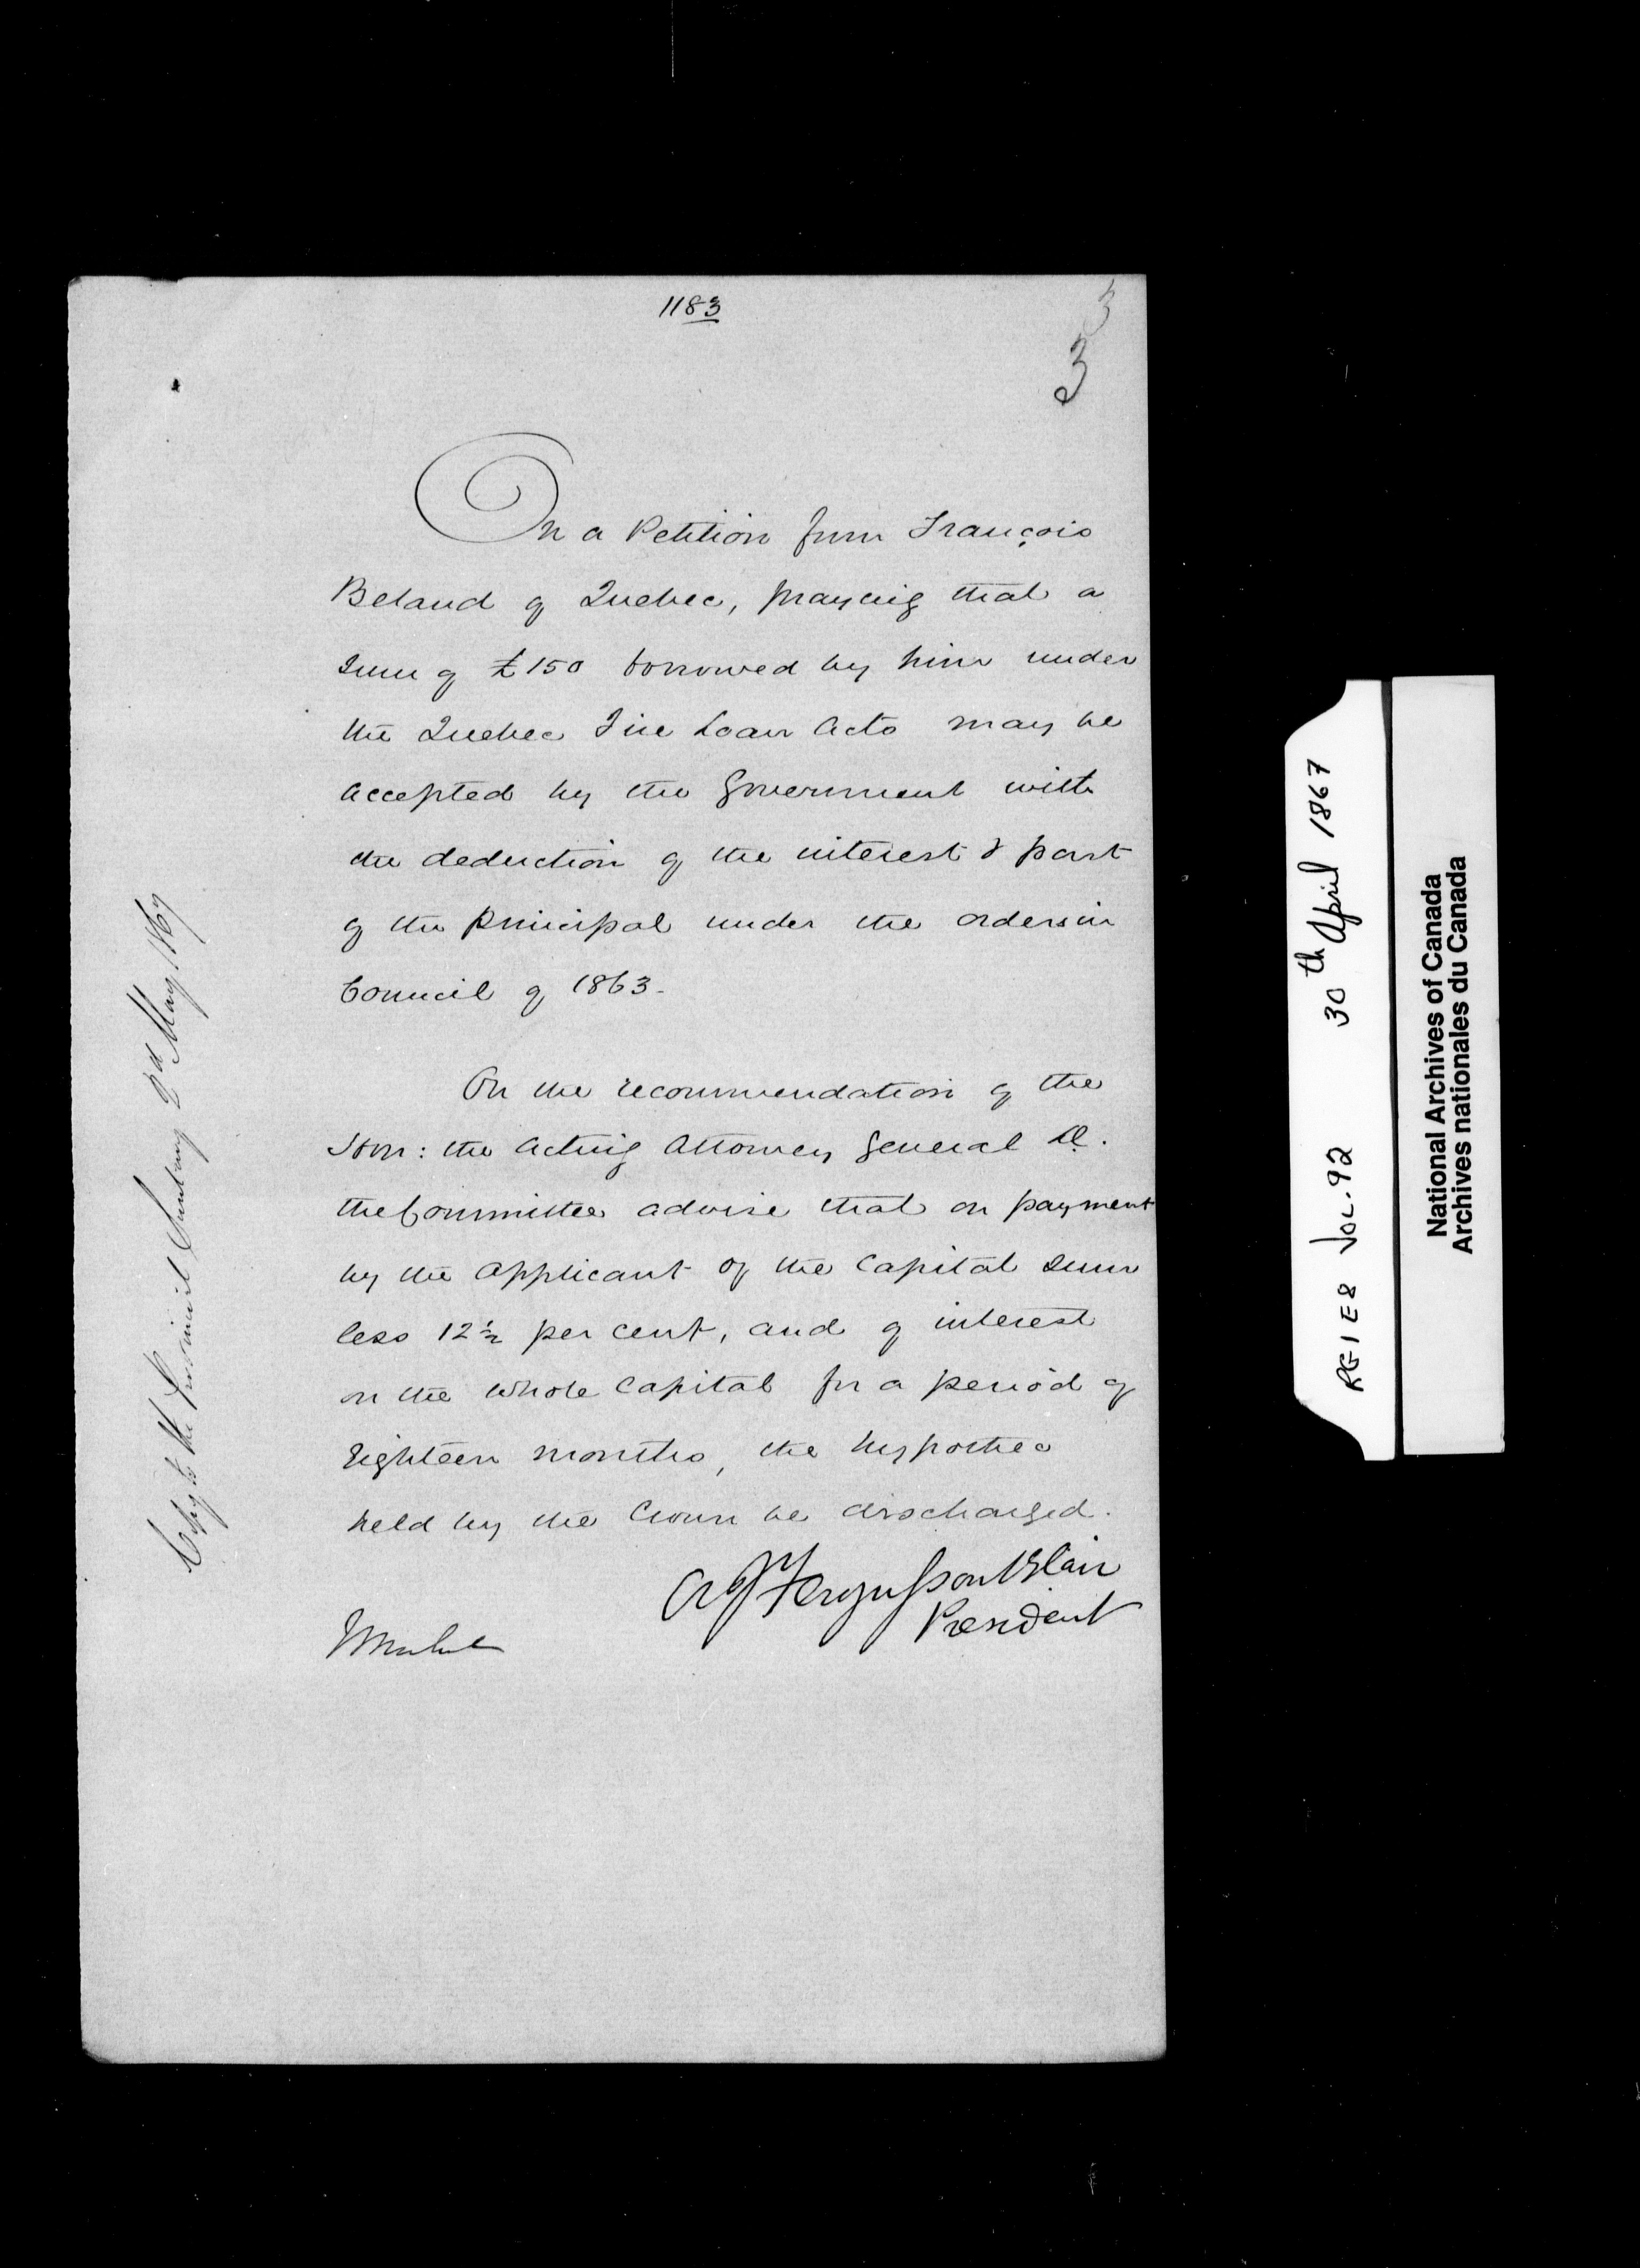 1183
3
3
On a Petition from François
Beland of Quebec, praying that a
Sum of £150 borrowed by him under
the Quebec Fire Loan Acts may be
accepted by the Government with
the deduction of the interest & part
of the Principal under the orders in
Council of 1863.
On the recommendation of the
Hon: the Acting Attorney General
the Committee advise that on payment
by the Applicant of the Capital Sum
less 12½ per cent, and of interest
on the whole Capital for a period of
Eighteen months, the hypothec
held by the Crown be discharged.
A J Fergusson Blair
President
Copy to the Provincial Secretary 2d May 1867
RG1E8 VOL. 92 30th April 1867
National Archives of Canada
Archives nationales du Canada